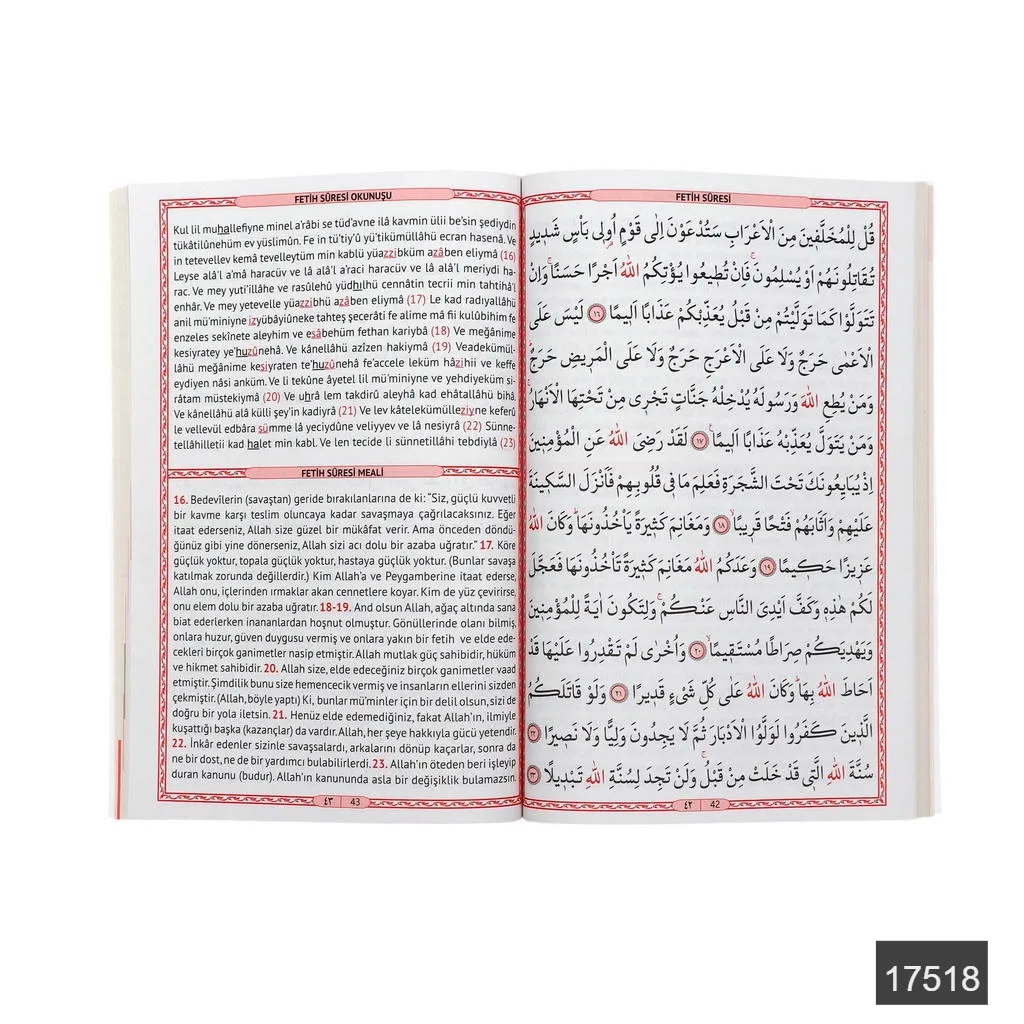 FETİH SÛRESİ
قُلْ لِلْمُخَلَّفٖينَ مِنَ الْاَعْرَابِ سَتُدْعَوْنَ اِلٰى قَوْمٍ اُو۬لٖى بَأْسٍ شَدٖيدٍ
تُقَاتِلُونَهُمْ اَوْ يُسْلِمُونَۚ فَاِنْ تُطٖيعُوا يُؤْتِكُمُ اللّٰهُ اَجْرًا حَسَنًاۚ وَاِنْ
تَتَوَلَّوْا كَمَا تَوَلَّيْتُمْ مِنْ قَبْلُ يُعَذِّبْكُمْ عَذَابًا اَلٖيمًا ﴿١٦﴾ لَيْسَ عَلَى
الْاَعْمٰى حَرَجٌ وَلَا عَلَى الْاَعْرَجِ حَرَجٌ وَلَا عَلَى الْمَرٖيضِ حَرَجٌۜ
وَمَنْ يُطِعِ اللّٰهَ وَرَسُولَهُ يُدْخِلْهُ جَنَّاتٍ تَجْرٖى مِنْ تَحْتِهَا الْاَنْهَارُۚ
وَمَنْ يَتَوَلَّ يُعَذِّبْهُ عَذَابًا اَلٖيمًاۚ ﴿١٧﴾ لَقَدْ رَضِىَ اللّٰهُ عَنِ الْمُؤْمِنٖينَ
اِذْ يُبَايِعُونَكَ تَحْتَ الشَّجَرَةِ فَعَلِمَ مَا فٖى قُلُوبِهِمْ فَاَنْزَلَ السَّكٖينَةَ
عَلَيْهِمْ وَاَثَابَهُمْ فَتْحًا قَرٖيبًاۙ ﴿١٨﴾ وَمَغَانِمَ كَثٖيرَةً يَأْخُذُونَهَاۜ وَكَانَ اللّٰهُ
عَزٖيزًا حَكٖيمًا ﴿١٩﴾ وَعَدَكُمُ اللّٰهُ مَغَانِمَ كَثٖيرَةً تَأْخُذُونَهَا فَعَجَّلَ
لَكُمْ هٰذِهٖ وَكَفَّ اَيْدِىَ النَّاسِ عَنْكُمْۚ وَلِتَكُونَ اٰيَةً لِلْمُؤْمِنٖينَ
وَيَهْدِيَكُمْ صِرَاطًا مُسْتَقٖيمًاۙ ﴿٢٠﴾ وَاُخْرٰى لَمْ تَقْدِرُوا عَلَيْهَا قَدْ
اَحَاطَ اللّٰهُ بِهَاۜ وَكَانَ اللّٰهُ عَلٰى كُلِّ شَىْءٍ قَدٖيرًا ﴿٢١﴾ وَلَوْ قَاتَلَكُمُ
الَّذٖينَ كَفَرُوا لَوَلَّوُا الْاَدْبَارَ ثُمَّ لَا يَجِدُونَ وَلِيًّا وَلَا نَصٖيرًا ﴿٢٢﴾
سُنَّةَ اللّٰهِ الَّتٖى قَدْ خَلَتْ مِنْ قَبْلُۚ وَلَنْ تَجِدَ لِسُنَّةِ اللّٰهِ تَبْدٖيلًا ﴿٢٣﴾
٤٢ 42
FETİH SÛRESİ OKUNUŞU
Kul lil muhallefiyne minel a’râbi se tüd’avne ilâ kavmin ülii be’sin şediydin
tükâtilûnehüm ev yüslimûn. Fe in tü’tiy’û yü’tikümüllâhü ecran hasenâ. Ve
in tetevellev kemâ tevelleytüm min kablü yüazzibküm azâben eliymâ (16)
Leyse alâ’l a’mâ haracüv ve lâ alâ’l a’raci haracüv ve lâ alâ’l meriydi ha-
rac. Ve mey yuti’illâhe ve rasûlehû yüdhilhü cennâtin tecrii min tahtihâ’l
enhâr. Ve mey yetevelle yüazzibhü azâben eliymâ (17) Le kad radıyallâhü
anil mü’miniyne izyübâyiûneke tahteş şecerâti fe alime mâ fii kulûbihim fe
enzeles sekînete aleyhim ve esâbehüm fethan kariybâ (18) Ve meğânime
kesiyratey ye’huzûnehâ. Ve kânellâhü azîzen hakiymâ (19) Veadekümül-
lâhü meğânime kesiyraten te’huzûnehâ fe’accele leküm hâzihii ve keffe
eydiyen nâsi anküm. Ve li tekûne âyetel lil mü’miniyne ve yehdiyeküm si-
râtam müstekiymâ (20) Ve uhrâ lem takdirû aleyhâ kad ehâtallâhü bihâ.
Ve kânellâhü alâ külli şey’in kadiyrâ (21) Ve lev kâtelekümülleziyne keferû
le vellevül edbâra sümme lâ yeciydûne veliyyev ve lâ nesiyrâ (22) Sünne-
tellâhilletii kad halet min kabl. Ve len tecide li sünnetillâhi tebdiylâ (23)
FETİH SÛRESİ MEALİ
16. Bedevîlerin (savaştan) geride bırakılanlarına de ki: “Siz, güçlü kuvvetli
bir kavme karşı teslim oluncaya kadar savaşmaya çağrılacaksınız. Eğer
itaat ederseniz, Allah size güzel bir mükâfat verir. Ama önceden döndü-
ğünüz gibi yine dönerseniz, Allah sizi acı dolu bir azaba uğratır.” 17. Köre
güçlük yoktur, topala güçlük yoktur, hastaya güçlük yoktur. (Bunlar savaşa
katılmak zorunda değillerdir.) Kim Allah’a ve Peygamberine itaat ederse,
Allah onu, içlerinden ırmaklar akan cennetlere koyar. Kim de yüz çevirirse,
onu elem dolu bir azaba uğratır. 18-19. And olsun Allah, ağaç altında sana
biat ederlerken inananlardan hoşnut olmuştur. Gönüllerinde olanı bilmiş,
onlara huzur, güven duygusu vermiş ve onlara yakın bir fetih ve elde ede-
cekleri birçok ganimetler nasip etmiştir. Allah mutlak güç sahibidir, hüküm
ve hikmet sahibidir. 20. Allah size, elde edeceğiniz birçok ganimetler vaad
etmiştir. Şimdilik bunu size hemencecik vermiş ve insanların ellerini sizden
çekmiştir. (Allah, böyle yaptı) Ki, bunlar mü’minler için bir delil olsun, sizi de
doğru bir yola iletsin. 21. Henüz elde edemediğiniz, fakat Allah’ın, ilmiyle
kuşattığı başka (kazançlar) da vardır. Allah, her şeye hakkıyla gücü yetendir.
22. İnkâr edenler sizinle savaşsalardı, arkalarını dönüp kaçarlar, sonra da
ne bir dost, ne de bir yardımcı bulabilirlerdi. 23. Allah’ın öteden beri işleyip
duran kanunu (budur). Allah’ın kanununda asla bir değişiklik bulamazsın.
٤٣ 43
17518